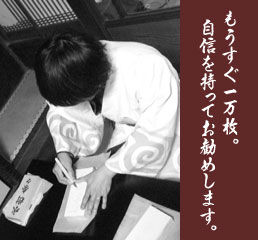 もうすぐ一万枚。
自信を持ってお勧めします。